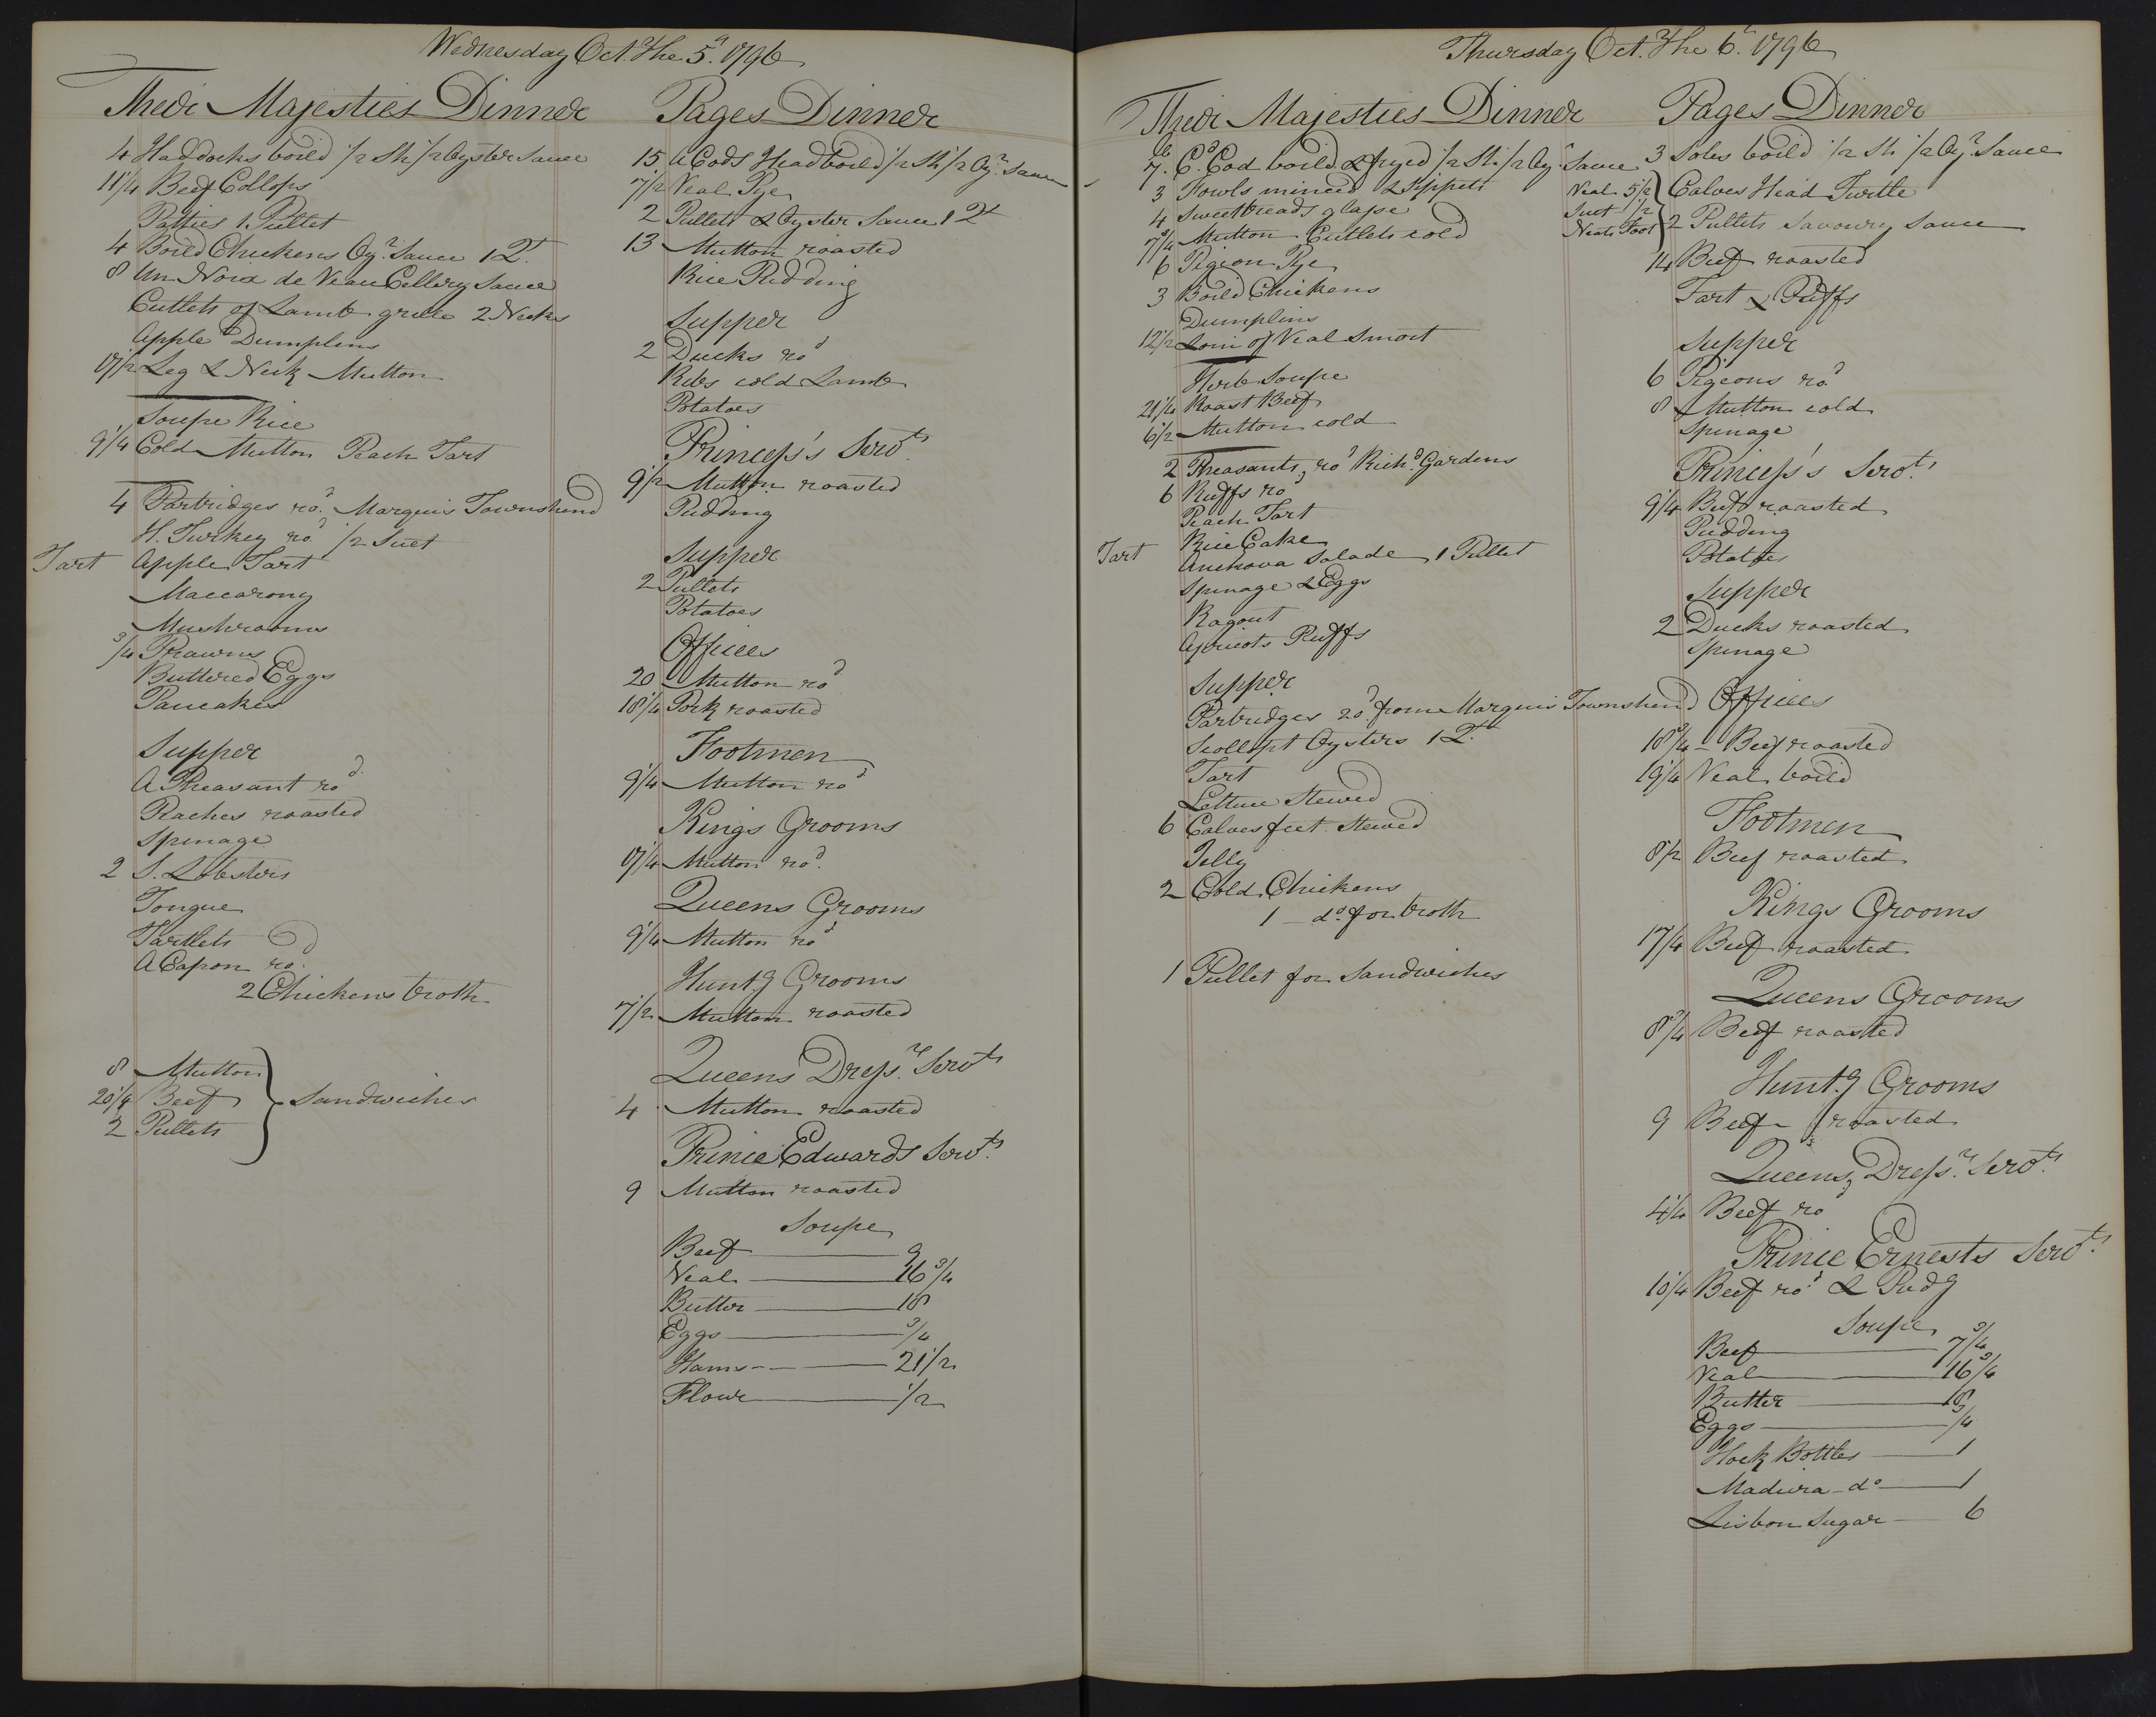 Wednesday Oct.r The 5.h 1796
Their Majesties Dinner
4 Haddocks boild 1/2 Sh: 1/2 Oyster Sauce
11 1/4 Beef Collops
Patties 1 Pullet
4 Boild Chickens Oy.r Sauce 1 Q.t
8 Un Noix de Veau Cellery Sauce
Cutlets of Lamb grille 2 Necks
Apple Dumplins
17 1/2 Leg & Neck Mutton
Soupe Rice
9 1/4 Cold Mutton Peach Tart
4 Partridges ro.d Marquis Townshend
H. Turkey ro.d 1/2 Suet
Tart Apple Tart
Maccarony
Mushrooms
3/4 Prawns
Buttered Eggs
Pancakes
Supper
A Pheasant ro.d
Peaches roasted
Spinage
2 S. Lobsters
Tongue
Tartlets
A Capon ro.d
2 Chickens broth
8 Mutton
20 1/4 Beef } Sandwiches
2 Pullets
Pages Dinner
15 A Cods Head boild 1/2 Sh: 1/2 Oy.r Sauce
7 1/2 Veal Pye
2 Pullets & Oyster Sauce 1 Q.t
13 Mutton roasted
Rice Pudding
Supper
2 Ducks ro.d
Ribs cold Lamb
Potatoes
Princess's Serv.ts
9 1/2 Mutton roasted
Pudding
Supper
2 Pullets
Potatoes
Offices
20 Mutton ro.d
18 1/4 Pork roasted
Footmen
9 1/4 Mutton ro.d
Kings Grooms
17 1/4 Mutton ro.d
Queens Grooms
9 1/4 Mutton ro.d
Hunt.g Grooms
7 1/2 Mutton roasted
Queens Dress.rs Serv.ts
4 Mutton roasted
Prince Edwards Serv.ts
9 Mutton roasted
Soupe
Beef 9
Veal 16 3/4
Butter 18
Eggs 3/4
Hams 21 1/2
Flour 1/2
Thursday Oct.r The 6.h 1796
Their Majesties Dinner
lb
7. C.d Cod boild & fryed 1/2 Sh: 1/2 Oy.r Sauce
3 Fowls minced & Sippets
4 Sweetbreads glasse
7 3/4 Mutton Cutlets cold
6 Pigeon Pye
3 Boild Chickens
Dumplins
12 1/2 Loin of Veal Smort
Herb Soupe
21 1/4 Roast Beef
6 1/2 Mutton cold
2 Pheasants ro.d Rich.d Gardens
6 Ruffs ro.d
Peach Tart
Rice Cake
Tart Anchova Salade 1 Pullet
Spinage & Eggs
Ragout
Apricots Puffs
Supper
Partridges ro.d from Marquis Townshend
Scollopt Oysters 1 Q.t
Tart
Lettuce Stewed
6 Calves feet Stewed
Jelly
2 Cold Chickens
1 d.o for broth
1 Pullet for Sandwiches
Pages Dinner
3 Soles boild 1/2 Sh: 1/2 Oy.r Sauce
Veal 5 1/2 } Calves Head Turtle
Suet 1 1/2
Neats Foot } 2 Pullets Savoury Sauce
14 Beef roasted
Tart & Puffs
Supper
6 Pigeons ro.d
8 Mutton cold
Spinage
Princess's Serv.ts
9 1/4 Beef roasted
Pudding
Potatoes
Supper
2 Ducks roasted
Spinage
Offices
18 3/4 Beef roasted
19 1/4 Veal boild
Footmen
8 1/2 Beef roasted
Kings Grooms
17 1/4 Beef roasted
Queens Grooms
8 3/4 Beef roasted
Hunt.g Grooms
9 Beef roasted
Queens Dress.rs Serv.ts
4 1/4 Beef ro.d
Prince Ernests Serv.ts
10 1/4 Beef ro.d & Pud.g
Soupe
Beef 7 3/4
Veal 16 3/4
Butter 18
Eggs 3/4
Hock Bottles 1
Madeira d.o 1
Lisbon Sugar 6